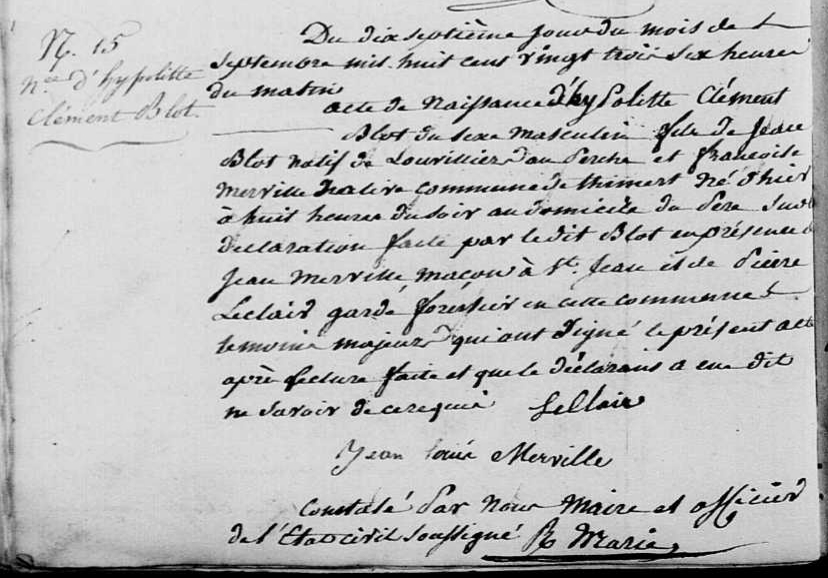 N. 15
N.ce d'hypolitte
Clément Blot.
Du dix septième jour du mois de
Septembre mil huit cens vingt trois six heures
du matin
acte de Naissance d'hypolitte Clément
Blot du sexe masculin fils de Jean
Blot natif de Louvilliers au Perche et francoise
Merville Native commune de thimert Né d'hier
à huit heures du soir au domicile du Pere Sur la
declaration faite par le dit Blot en présence de
Jean Merville maçon à St. Jean et de Pierre
Leclair garde forestier en cette commune
temoins majeurs qui ont Signé le présent acte
après lecture faite et que le déclarans a dit
ne Savoir de ce requis Leclair
Jean Louis Merville
Constaté Par Nous Maire et officier
de l'Etat civil Soussigné Marie